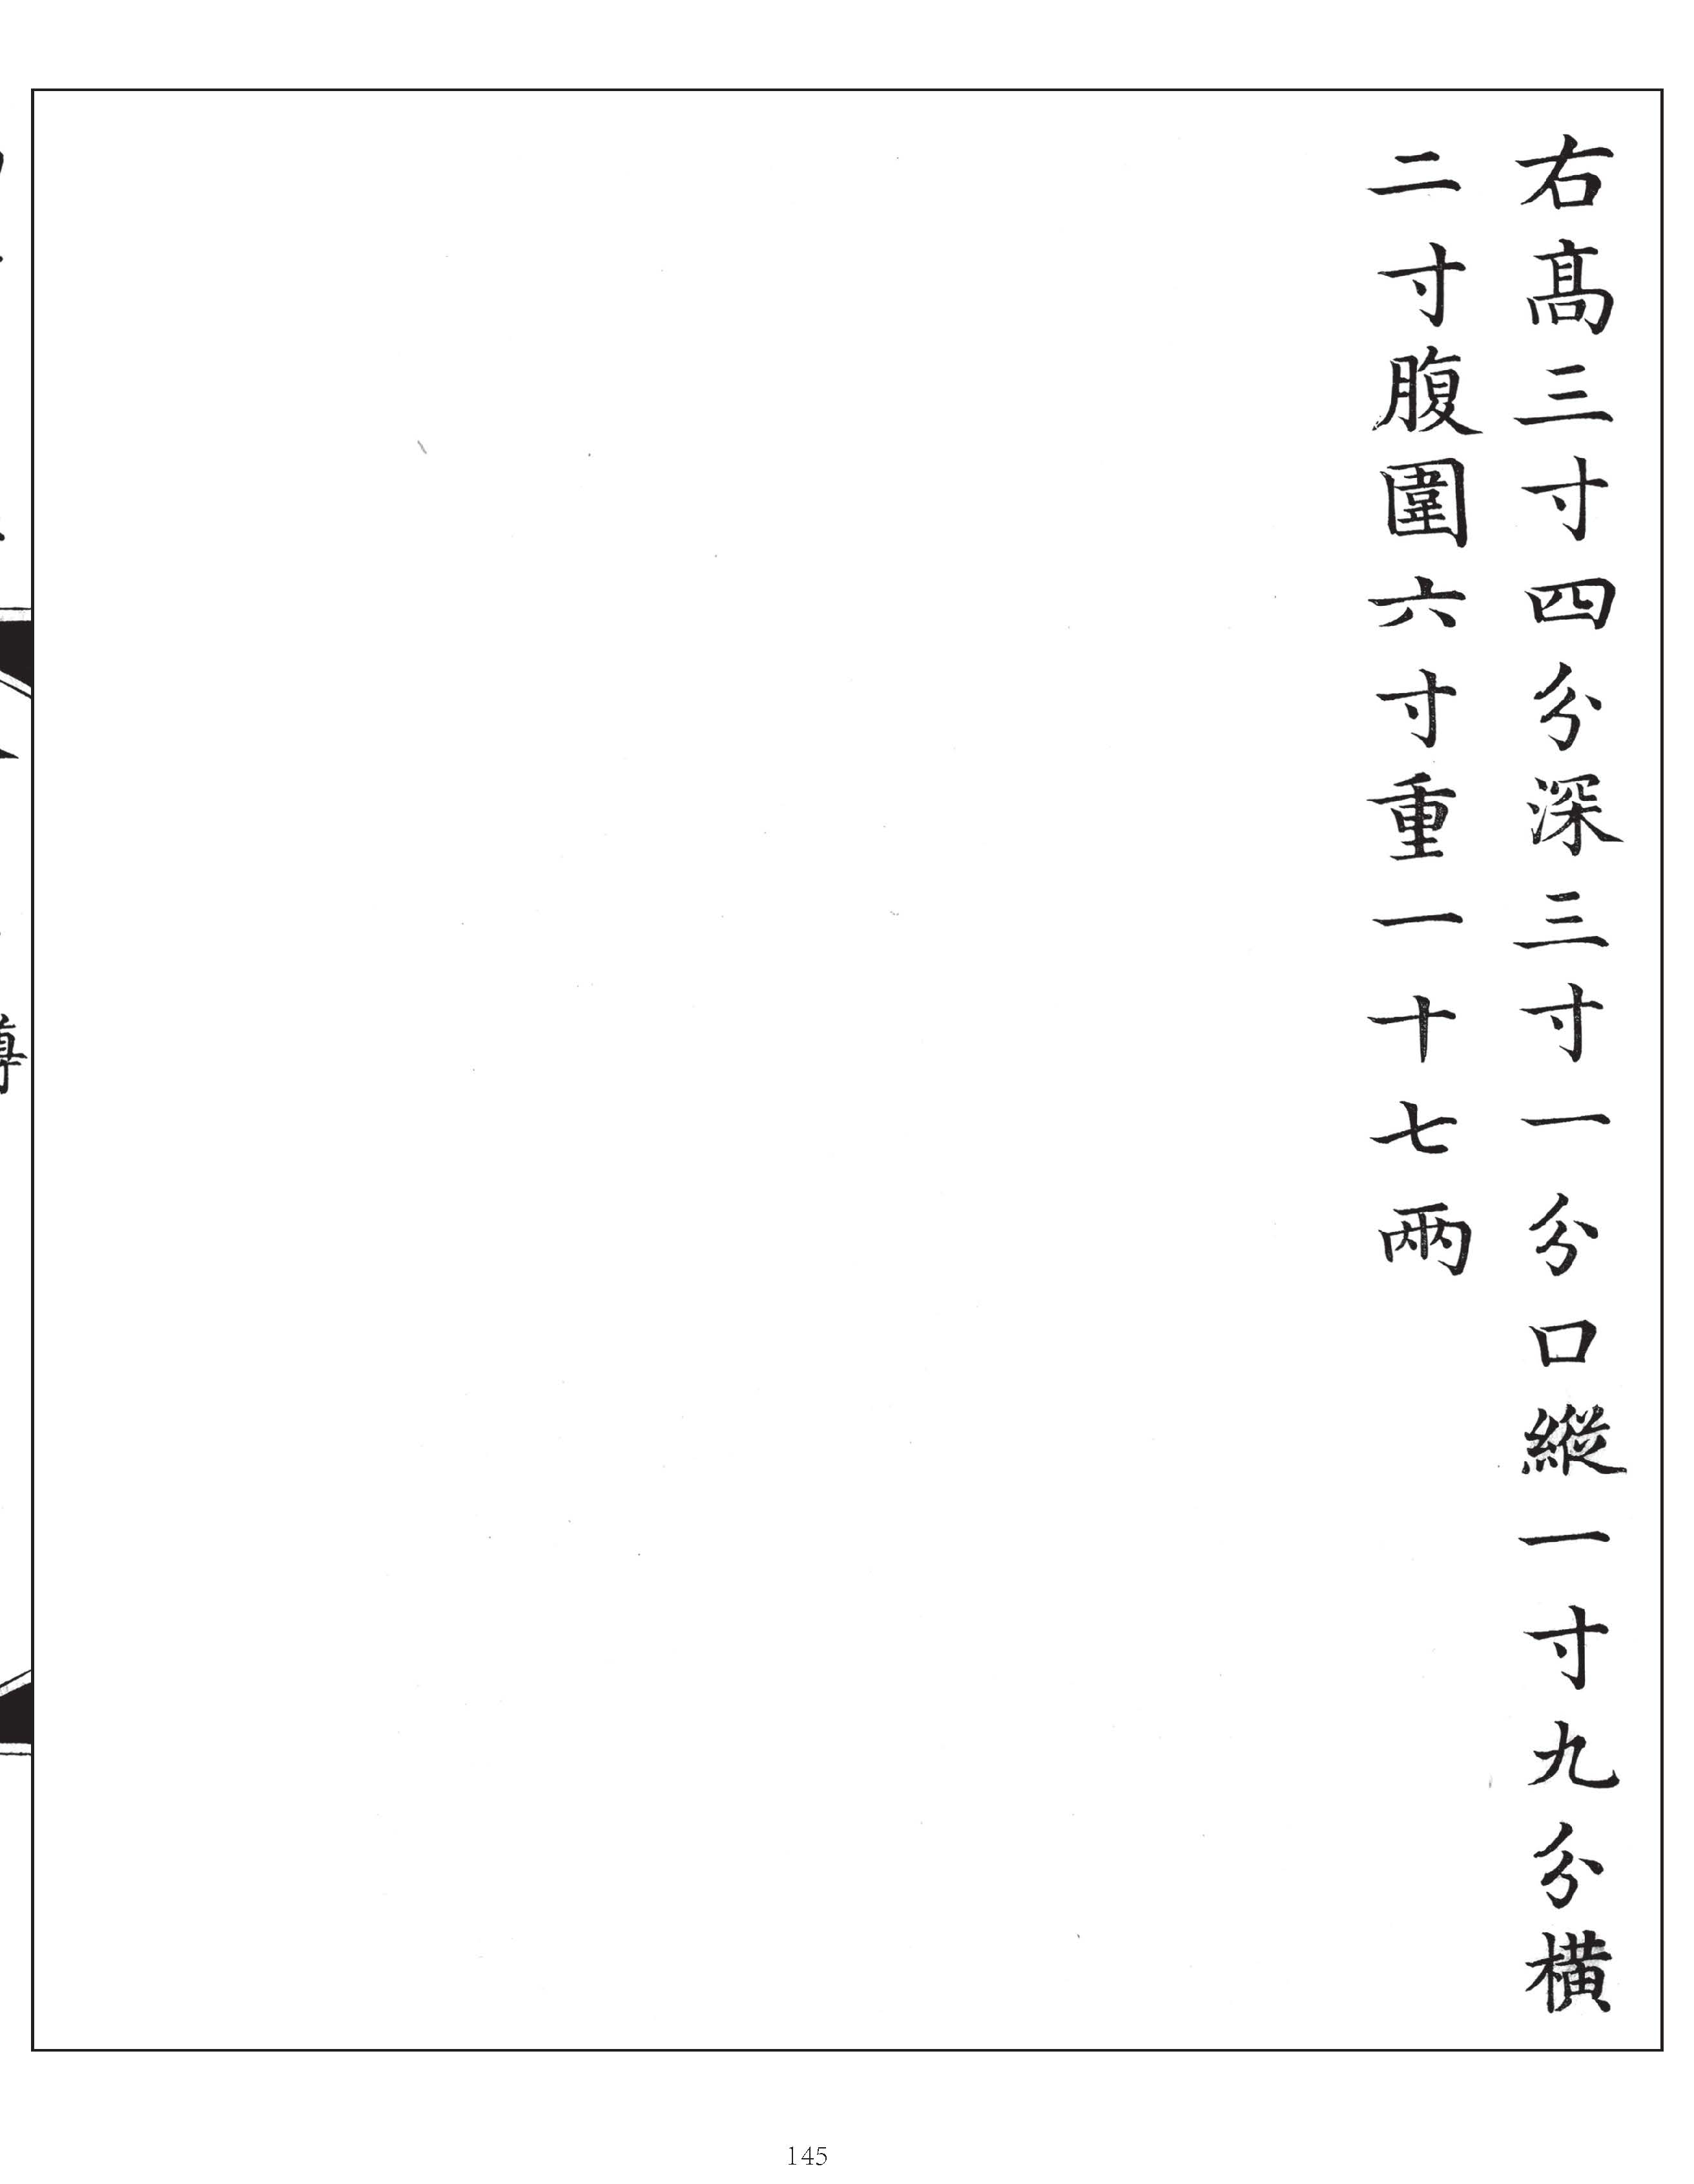 右髙三寸四分深三寸一分口縱一寸九分橫
二寸腹圍六寸重一十七兩
145